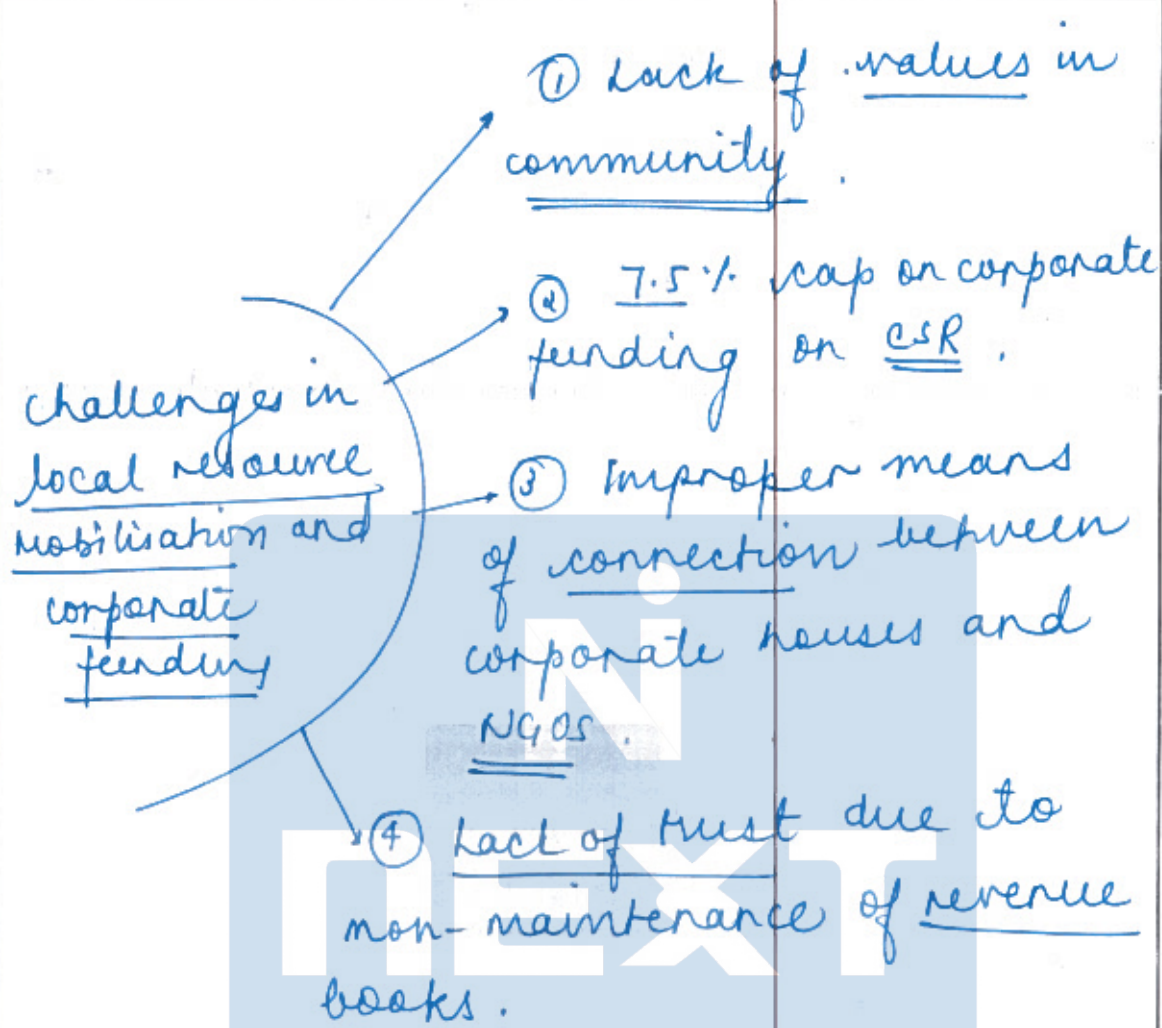 Challenges in
local resource
mobilisation and
corporate
funding
① Lack of values in
community.
② 7.5% cap on corporate
funding on CSR.
③ Improper means
of connection between
corporate houses and
NGOs.
④ Lack of trust due to
non-maintenance of revenue
books.
NEXT